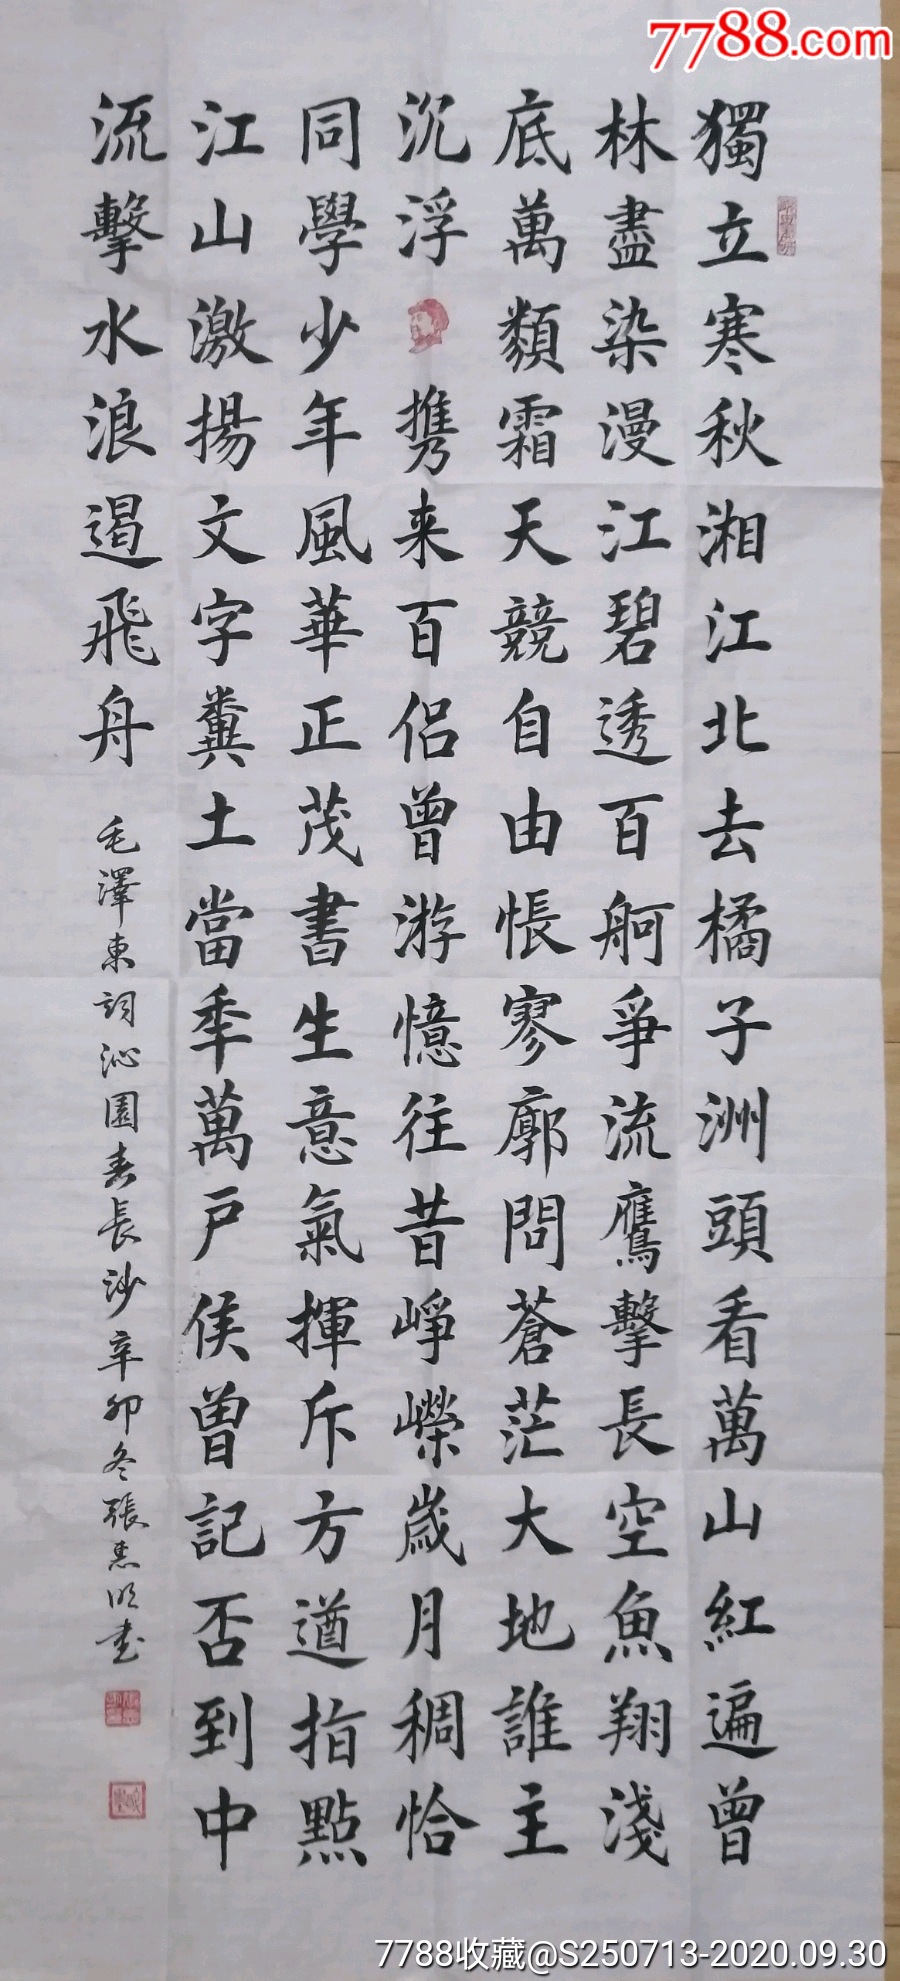 7788.com
獨立寒秋湘江北去橘子洲頭看萬山紅遍曾
林盡染漫江碧透百舸爭流鷹擊長空魚翔淺
底萬類霜天競自由悵寥廓問蒼茫大地誰主
沉浮 携来百侣曾游憶往昔崢嶸歲月稠恰
同學少年風華正茂書生意氣揮斥方遒指點
江山激揚文字糞土當年萬户侯曾記否到中
流擊水浪遏飛舟
毛澤東詞沁園春長沙辛卯冬張惠明书
7788收藏@S250713-2020.09.30